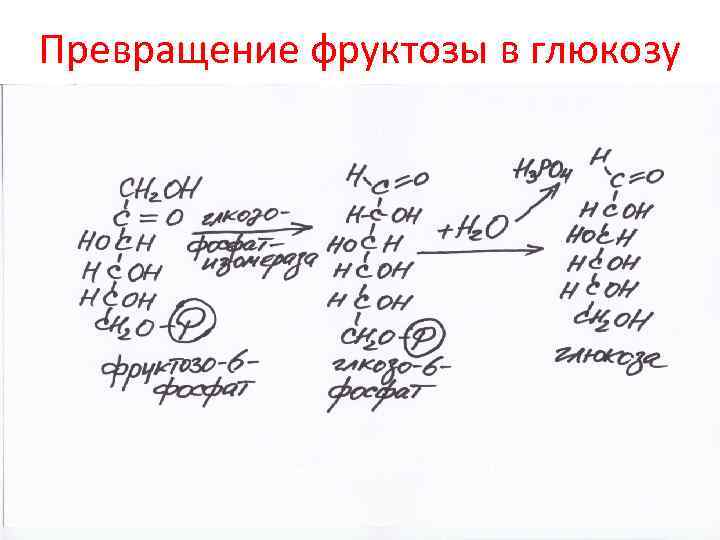 Превращение фруктозы в глюкозу
CH2OH
C=O
HOCH
HCOH
HCOH
CH2O-P
фруктозо-6-
фосфат
глкозо-
фосфат-
изомераза
H C=O
H-C-OH
HOCH
HCOH
HCOH
CH2O-P
глкозо-6-
фосфат
+H2O
H3PO4
H C=O
HCOH
HOCH
HCOH
HCOH
CH2OH
глюкоза